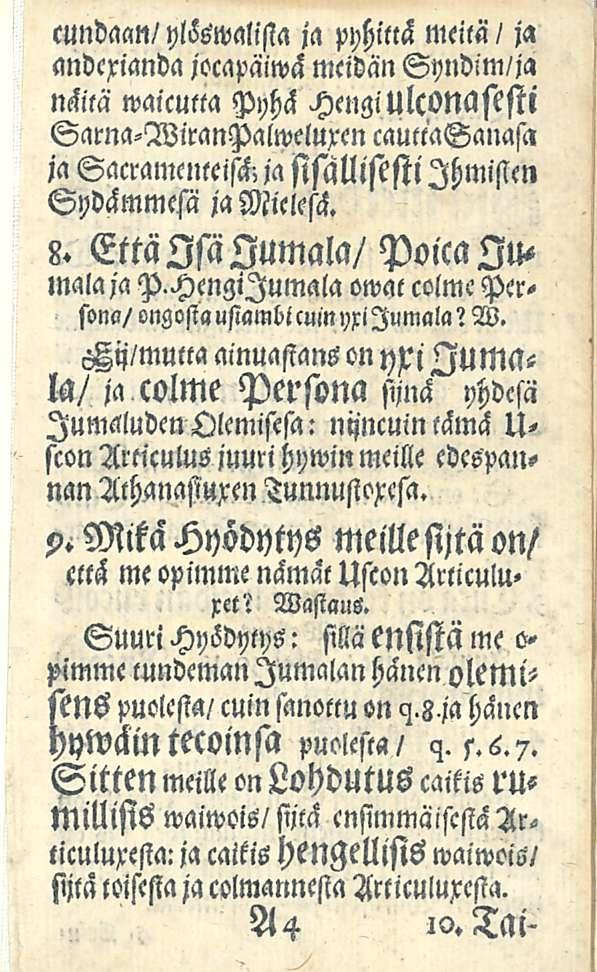 cundaan/ ylöswalista ja pyhittä meitä / ja
andexianda jocapäiwä meidän Syndim/ja
näitä waicutta Pyhä Hengi ulconaisesti
Sarna-WiranPalweluxen cauttaSanasa
ja Sacramenteisä; ja sisällisesti Ihmisten
Sydämmesä ja Mielesä.
8. Että Isä Jumala/ Poica Ju-
mala ja P. Hengi Jumala owat colme Per-
sona/ ongosta ustambi cuin yxi Jumala? W.
Eij/mutta ainuastans on yxi Juma-
la/ ja colme Persona sijnä yhdesä
Jumaluden Olemisesa: nijncuin tämä U-
scon Articulus juuri hywin meille edespan-
nan Athanasiuxen Tunnustoxesa.
9. Mikä Hyödytys meille sijtä on/
että me opimme nämät Uscon Articulu-
xet? Wastaus.
Suuri Hyödytys: sillä ensistä me o-
pimme tundeman Jumalan hänen olemi-
sens puolesta/ cuin sanottu on q.8.ja hänen
hywäin tecoinsa puolesta / q. 5.6.7.
Sitten meille on Lohdutus caikis ru-
millisis waiwois/ sijtä ensimmäisestä Ar-
ticuluxesta: ja caikis hengellisis waiwois/
sijtä toisesta ja colmannesta Articuluxesta.
A4 10. Tai-